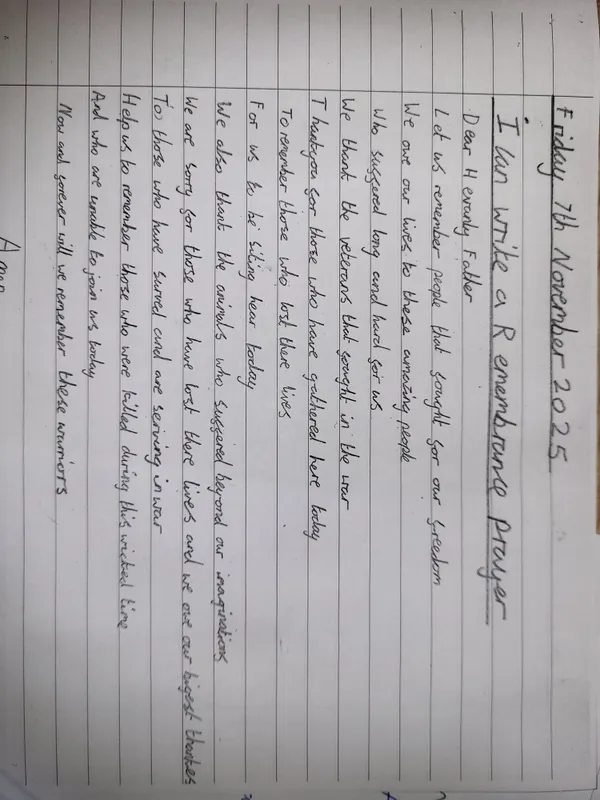 Friday 7th November 2025
I can write a Remembrance prayer
Dear Hevenly Father
Let us remember people that fought for our freedom
We owe our lives to these amazing people
Who suffered long and hard for us
We thank the veterans that fought in the war
Thankyou for those who have gathered here today
To remember those who lost there lives
For us to be siting hear today
We also thank the animals who suffered beyond our imaginations
We are sorry for those who have lost there lives and we owe our bigest thankes
To those who have surved and are serving in war
Help us to remember those who were killed during this wicked time
And who are unable to join us today
Now and forever will we remember these warriors
Amen